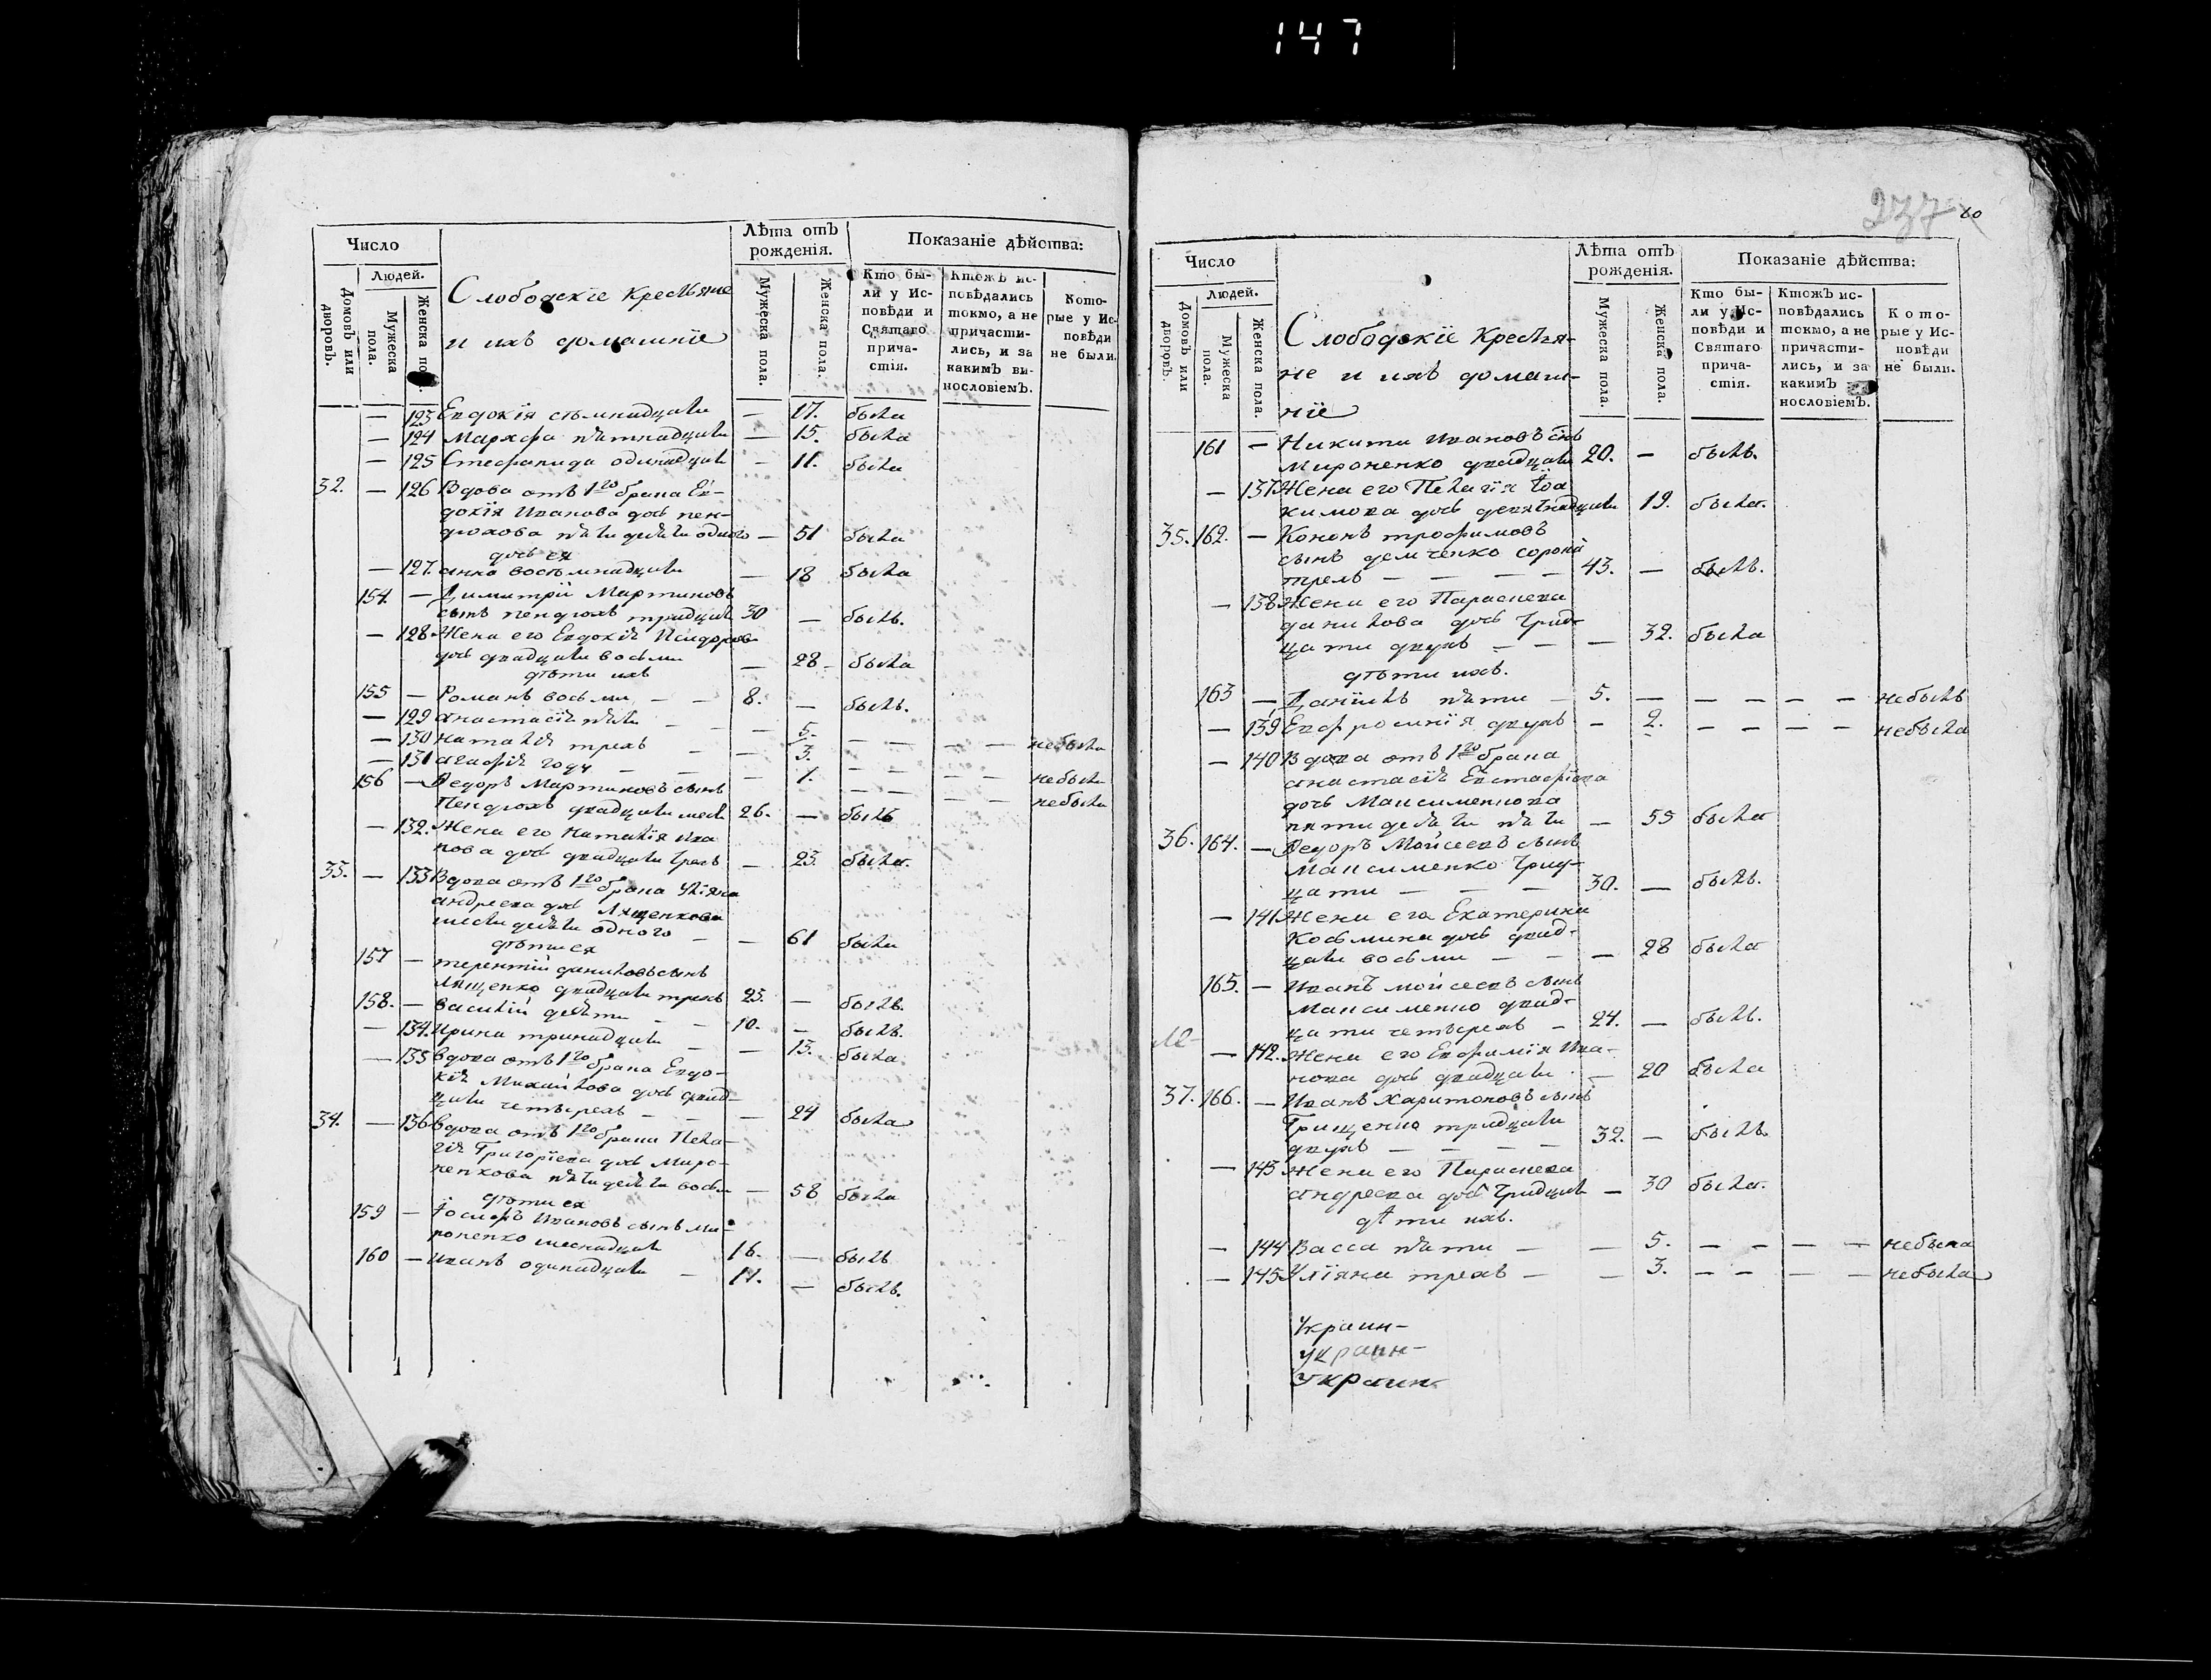 147
Число
Людей.
Домовъ или дворовъ.
Мужеска пола.
Женска пола.
Слободскіе Крестьяне
и ихъ домашніе
Лѣта отъ рожденія.
Мужеска пола.
Женска пола.
Показаніе дѣйства:
Кто были у Исповѣди и Святаго причастія.
Ктожъ исповѣдались токмо, а не причастились, и за какимъ винословіемъ.
Которые у Исповѣди не были.
— 123 Евдокія семнадцати — 17. была
— 124 Марѳфа пятнадцати — 15. была
— 125 Стефанида одинадцати — 11. была
32. — 126 Вдова отъ 1го брака Ев-
докія Иванова дочь пен-
дюхова пятидесяти одного — 51 была
дочь ея
— 127. анна восемнадцати — 18 была
154. — Димитрій Мартиновъ
сынъ пендюхъ тридцати 30 — былъ.
— 128 Жена его Евдокія Исидорова
дочь двадцати восьми — 28 — была
дѣти ихъ
155 — Романъ восьми — — 8. — былъ.
— 129 анастасія пяти — — — 5. — — — — небыла
— 130 наталія трехъ — — 3. — — — — небыла
— 131 агафія году — — — 1. — — — — небыла
156 — Ѳедоръ Мартиновъ сынъ
Пендюхъ двадцати шести 26. — былъ
— 132. Жена его наталія Ива
нова дочь двадцати трехъ — 23. была.
33. — 133 Вдова отъ 1го брака Уліяна
андреева дочь Лященкова
шестидесяти одного — — 61 была
дѣти ея
157 — терентій даниловъ сынъ
Лященко двадцати трехъ 23. — былъ.
158. — василій десяти — — 10. — былъ.
— 134. Ирина тринадцати — — 13. была
— 135 вдова отъ 1го брака Евдо-
кія Михайлова дочь двад-
цати четырехъ — — — 24 была
34. — 136 вдова отъ 1го брака Пела-
гія Григоріева дочь Миро-
ненкова пятидесяти восьми — 58 была
дѣти ея
159 — Іосифъ Ивановъ сынъ ми-
роненко шеснадцати 16. — былъ
160 — иванъ одинадцати — 11. — былъ.
237
60
Число
Людей.
Домовъ или дворовъ.
Мужеска пола.
Женска пола.
Слободскіе Крестья-
не и ихъ домаш-
ніе
Лѣта отъ рожденія.
Мужеска пола.
Женска пола.
Показаніе дѣйства:
Кто были у Исповѣди и Святаго причастія.
Ктожъ исповѣдались токмо, а не причастились, и за какимъ нословіемъ.
Которые у Исповѣди не были.
161 — Никита Ивановъ снъ
Мироненко двадцати 20. — былъ.
— 137 Жена его Пелагія Іоа
кимова дочь девятнадцати 19. была.
35. 162. — Кононъ трофимовъ
сынъ демченко сорока
трехъ — — — — 43. — былъ.
— 138 Жена его Параскева
данилова дочь Трид-
цати двухъ — — — 32. была
дѣти ихъ.
163 — Даніилъ пяти — 5. — — — — — небылъ
— 139 Евфросинія двухъ — 2. — — — — небыла
— 140 Вдова отъ 1го брака
анастасія Евстафіева
дочь Максименкова
пятидесяти пяти — 55 была
36. 164. — Ѳедоръ Мойсеевъ сынъ
Максименко Трид-
цати — — — 30. — былъ.
— 141 Жена его Екатерина
Косьмина дочь двад-
цати восьми — — — 28 была
165. — Иванъ мойсеевъ сынъ
Максименко двад-
цати четырехъ — 24. — былъ.
— 142. Жена его Евфимія Ива-
нова дочь двадцати — 20 была
37. 166. — Иванъ Харитоновъ сынъ
Грищенко тридцати
двухъ — — — 32. — былъ.
— 143 Жена его Параскева
андреева дочь Тридцати — 30 была.
дѣти ихъ.
— 144 Васса пяти — — 5. — — — — небыла
— 145 Уліяна трехъ — — 3. — — — — небыла
Украин-
украин-
Украин